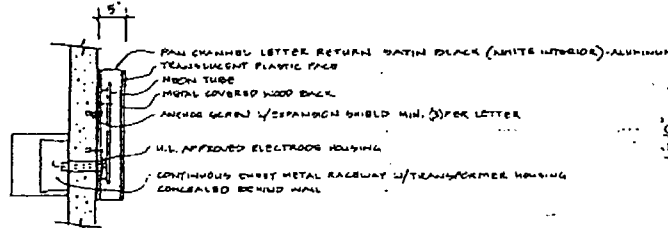 5"
PAN CHANNEL LETTER RETURN SATIN BLACK (WHITE INTERIOR)-ALUMINUM
TRANSLUCENT PLASTIC FACE
NEON TUBE
METAL COVERED WOOD BACK
ANCHOR SCREW W/EXPANSION SHIELD MIN. (3) PER LETTER
U.L. APPROVED ELECTRODE HOUSING
CONTINUOUS SHEET METAL RACEWAY W/TRANSFORMER HOUSING
CONCEALED BEHIND WALL